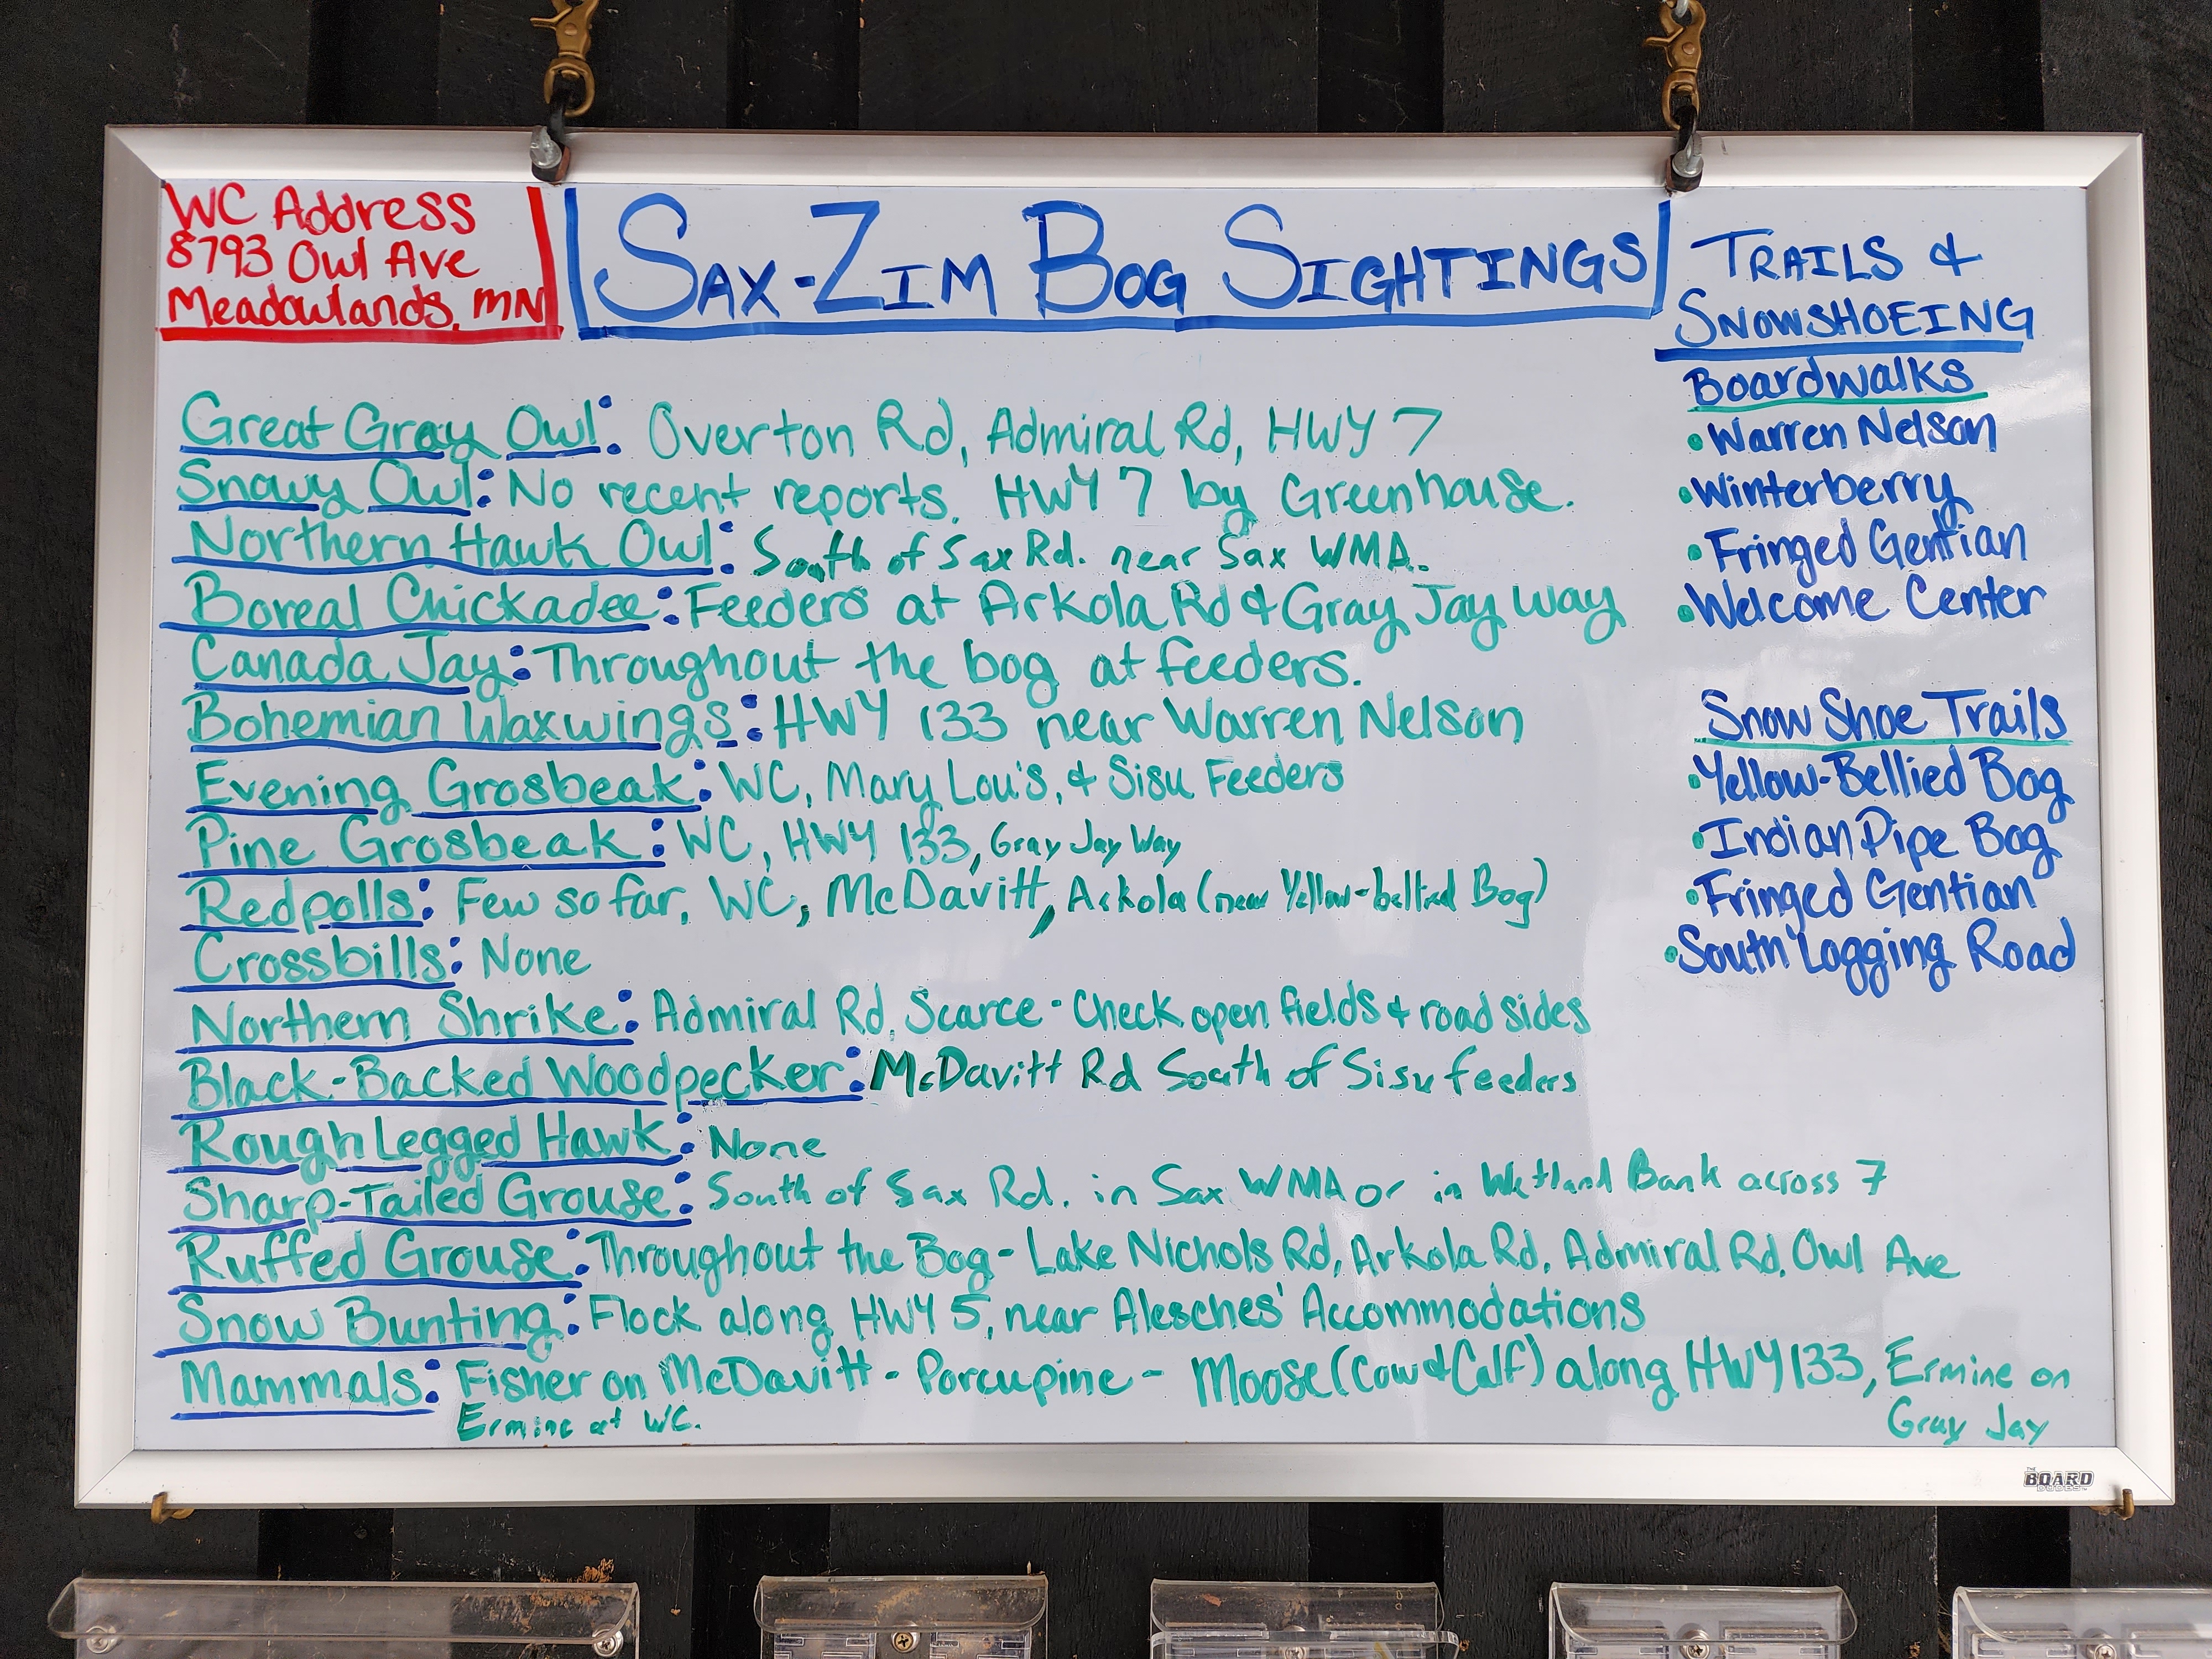 WC Address
8793 Owl Ave
Meadowlands, MN
SAX-ZIM BOG SIGHTINGS
Great Gray Owl: Overton Rd, Admiral Rd, HWY 7
Snowy Owl: No recent reports. HWY 7 by Greenhouse.
Northern Hawk Owl: South of Sax Rd. near Sax WMA.
Boreal Chickadee: Feeders at Arkola Rd & Gray Jay Way
Canada Jay: Throughout the bog at feeders.
Bohemian Waxwings: HWY 133 near Warren Nelson
Evening Grosbeak: WC, Mary Lou's, & Sisu Feeders
Pine Grosbeak: WC, HWY 133, Gray Jay Way
Redpolls: Few so far, WC, McDavitt, Arkola (near Yellow-bellied Bog)
Crossbills: None
Northern Shrike: Admiral Rd, Scarce - Check open fields & road sides
Black-Backed Woodpecker: McDavitt Rd South of Sisu feeders
Rough Legged Hawk: None
Sharp-Tailed Grouse: South of Sax Rd. in Sax WMA or in Wetland Bank across 7
Ruffed Grouse: Throughout the Bog - Lake Nichols Rd, Arkola Rd, Admiral Rd, Owl Ave
Snow Bunting: Flock along HWY 5, near Alesches' Accommodations
Mammals: Fisher on McDavitt - Porcupine - Moose (Cow & Calf) along HWY 133, Ermine on
Gray Jay
Ermine at WC.
TRAILS &
SNOWSHOEING
Boardwalks
• Warren Nelson
• Winterberry
• Fringed Gentian
• Welcome Center
Snow Shoe Trails
• Yellow-Bellied Bog
• Indian Pipe Bog
• Fringed Gentian
• South Logging Road
THE
BOARD
DUDES